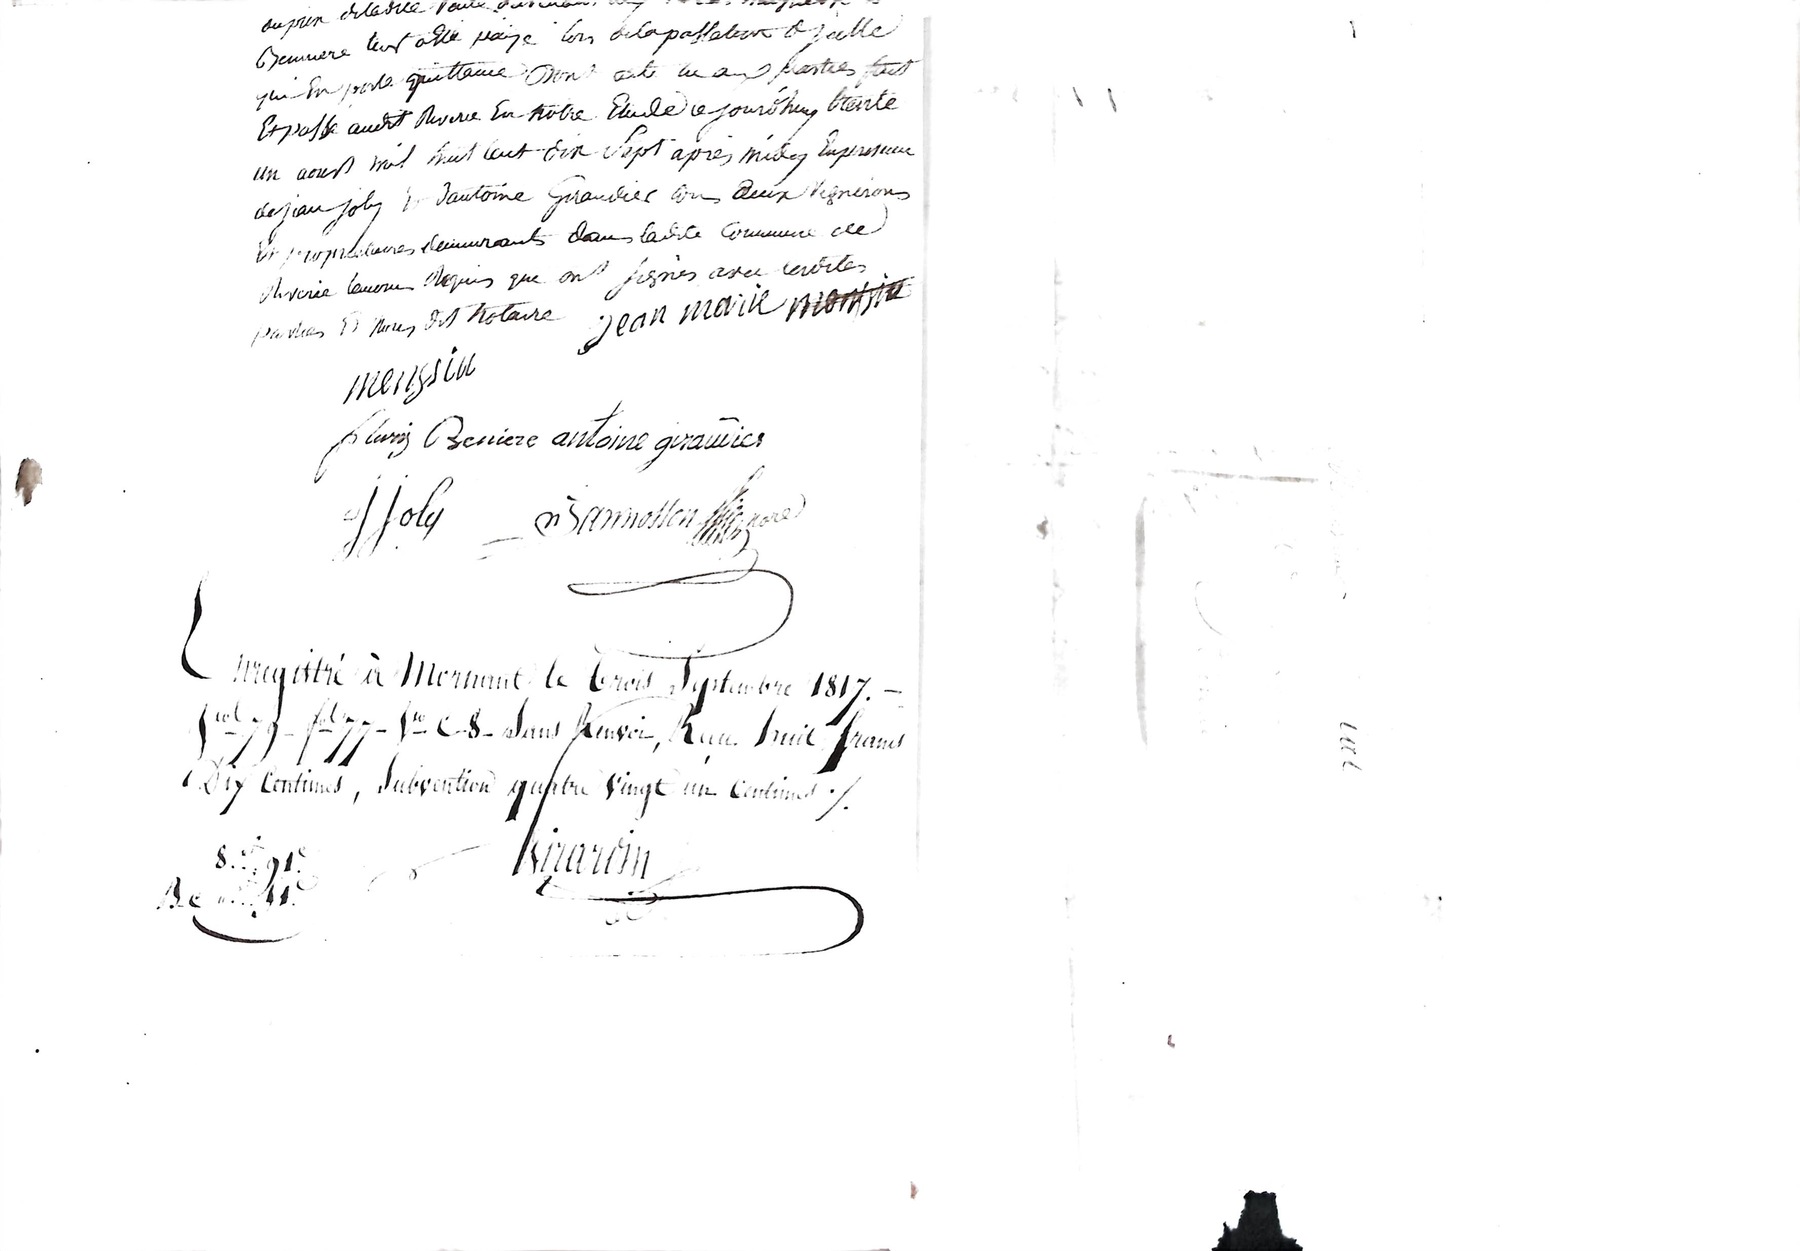 du prix de ladite vente
Beniere leur a été payé lors de la passation d'icelle
qui En porte quittance Dont acte lu aux parties fait
Et passé audit Riverie En notre Etude Ce jourd'huy trente
un aoust mil huit Cent dix Sept après midy En presence
de jean joly & d'antoine Giraudier tous deux vignerons
Et proprietaires demeurants dans ladite Commune de
Riverie temoins Requis que ont signés avec lesdites
parties Et Nous dit Notaire jean marie monsiu
mensiu
Beniere antoine giraudier
j joly
Enregistré à Mornant le trois Septembre 1817. –
fol 77 – C 8 – Sans Renvoi, Reçu huit francs
Dix Centimes, Subvention quatre vingt un Centimes ./.
8. 91.
Girardin